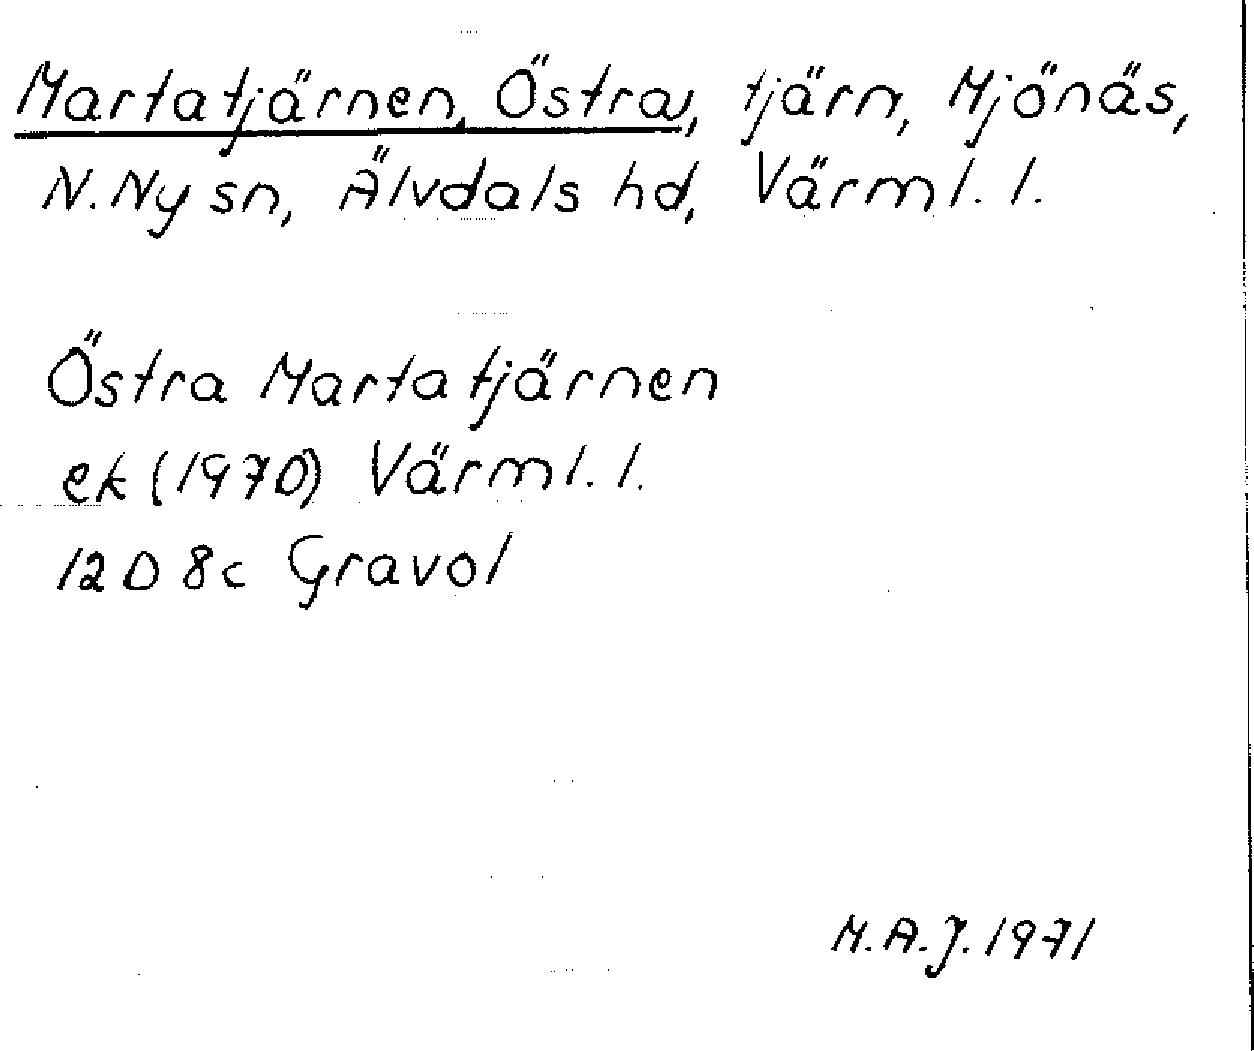 Martatjärnen, Östra, tjärn, Mjönäs,
N. Ny sn, Älvdals hd, Värml. l.
Östra Martatjärnen
ek (1970) Värml. l.
12 D 8c Gravol
M. A. J. 1971